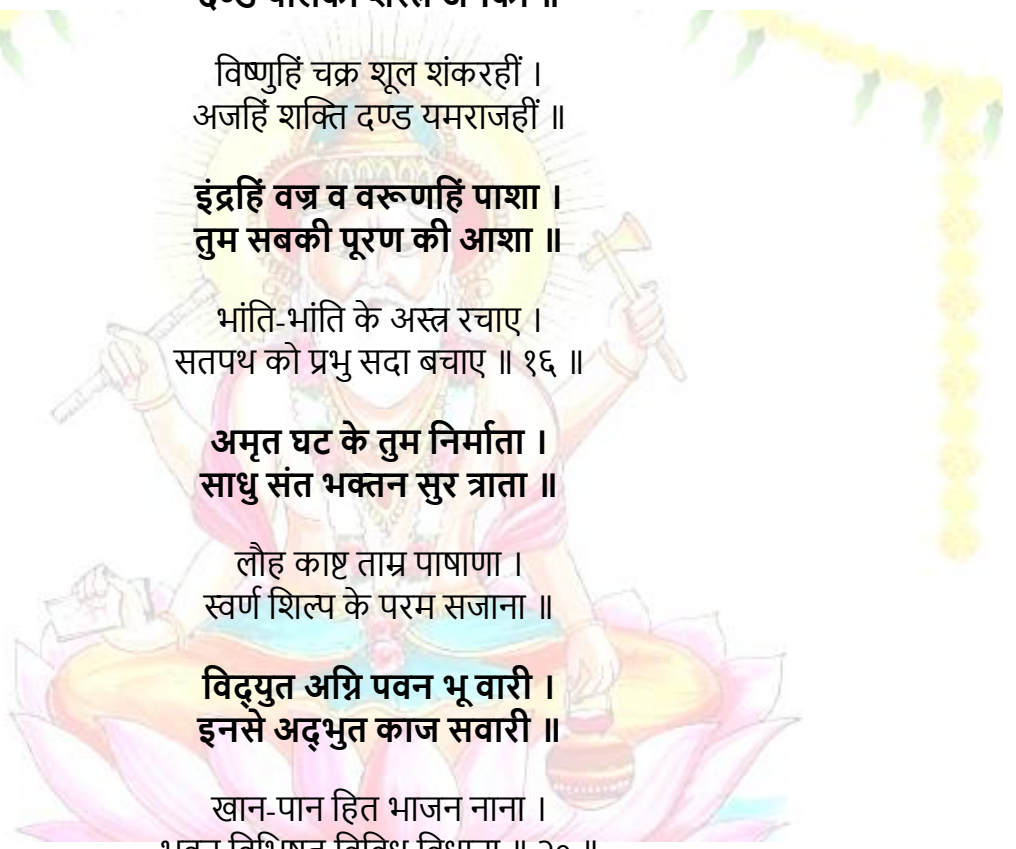 विष्णुहिं चक्र शूल शंकरहीं ।
अजहिं शक्ति दण्ड यमराजहीं ॥
इंद्रहिं वज्र व वरूणहिं पाशा ।
तुम सबकी पूरण की आशा ॥
भांति-भांति के अस्त्र रचाए ।
सतपथ को प्रभु सदा बचाए ॥ १६ ॥
अमृत घट के तुम निर्माता ।
साधु संत भक्तन सुर त्राता ॥
लौह काष्ट ताम्र पाषाणा ।
स्वर्ण शिल्प के परम सजाना ॥
विद्युत अग्नि पवन भू वारी ।
इनसे अद्भुत काज सवारी ॥
खान-पान हित भाजन नाना ।
विविध ॥ २० ॥